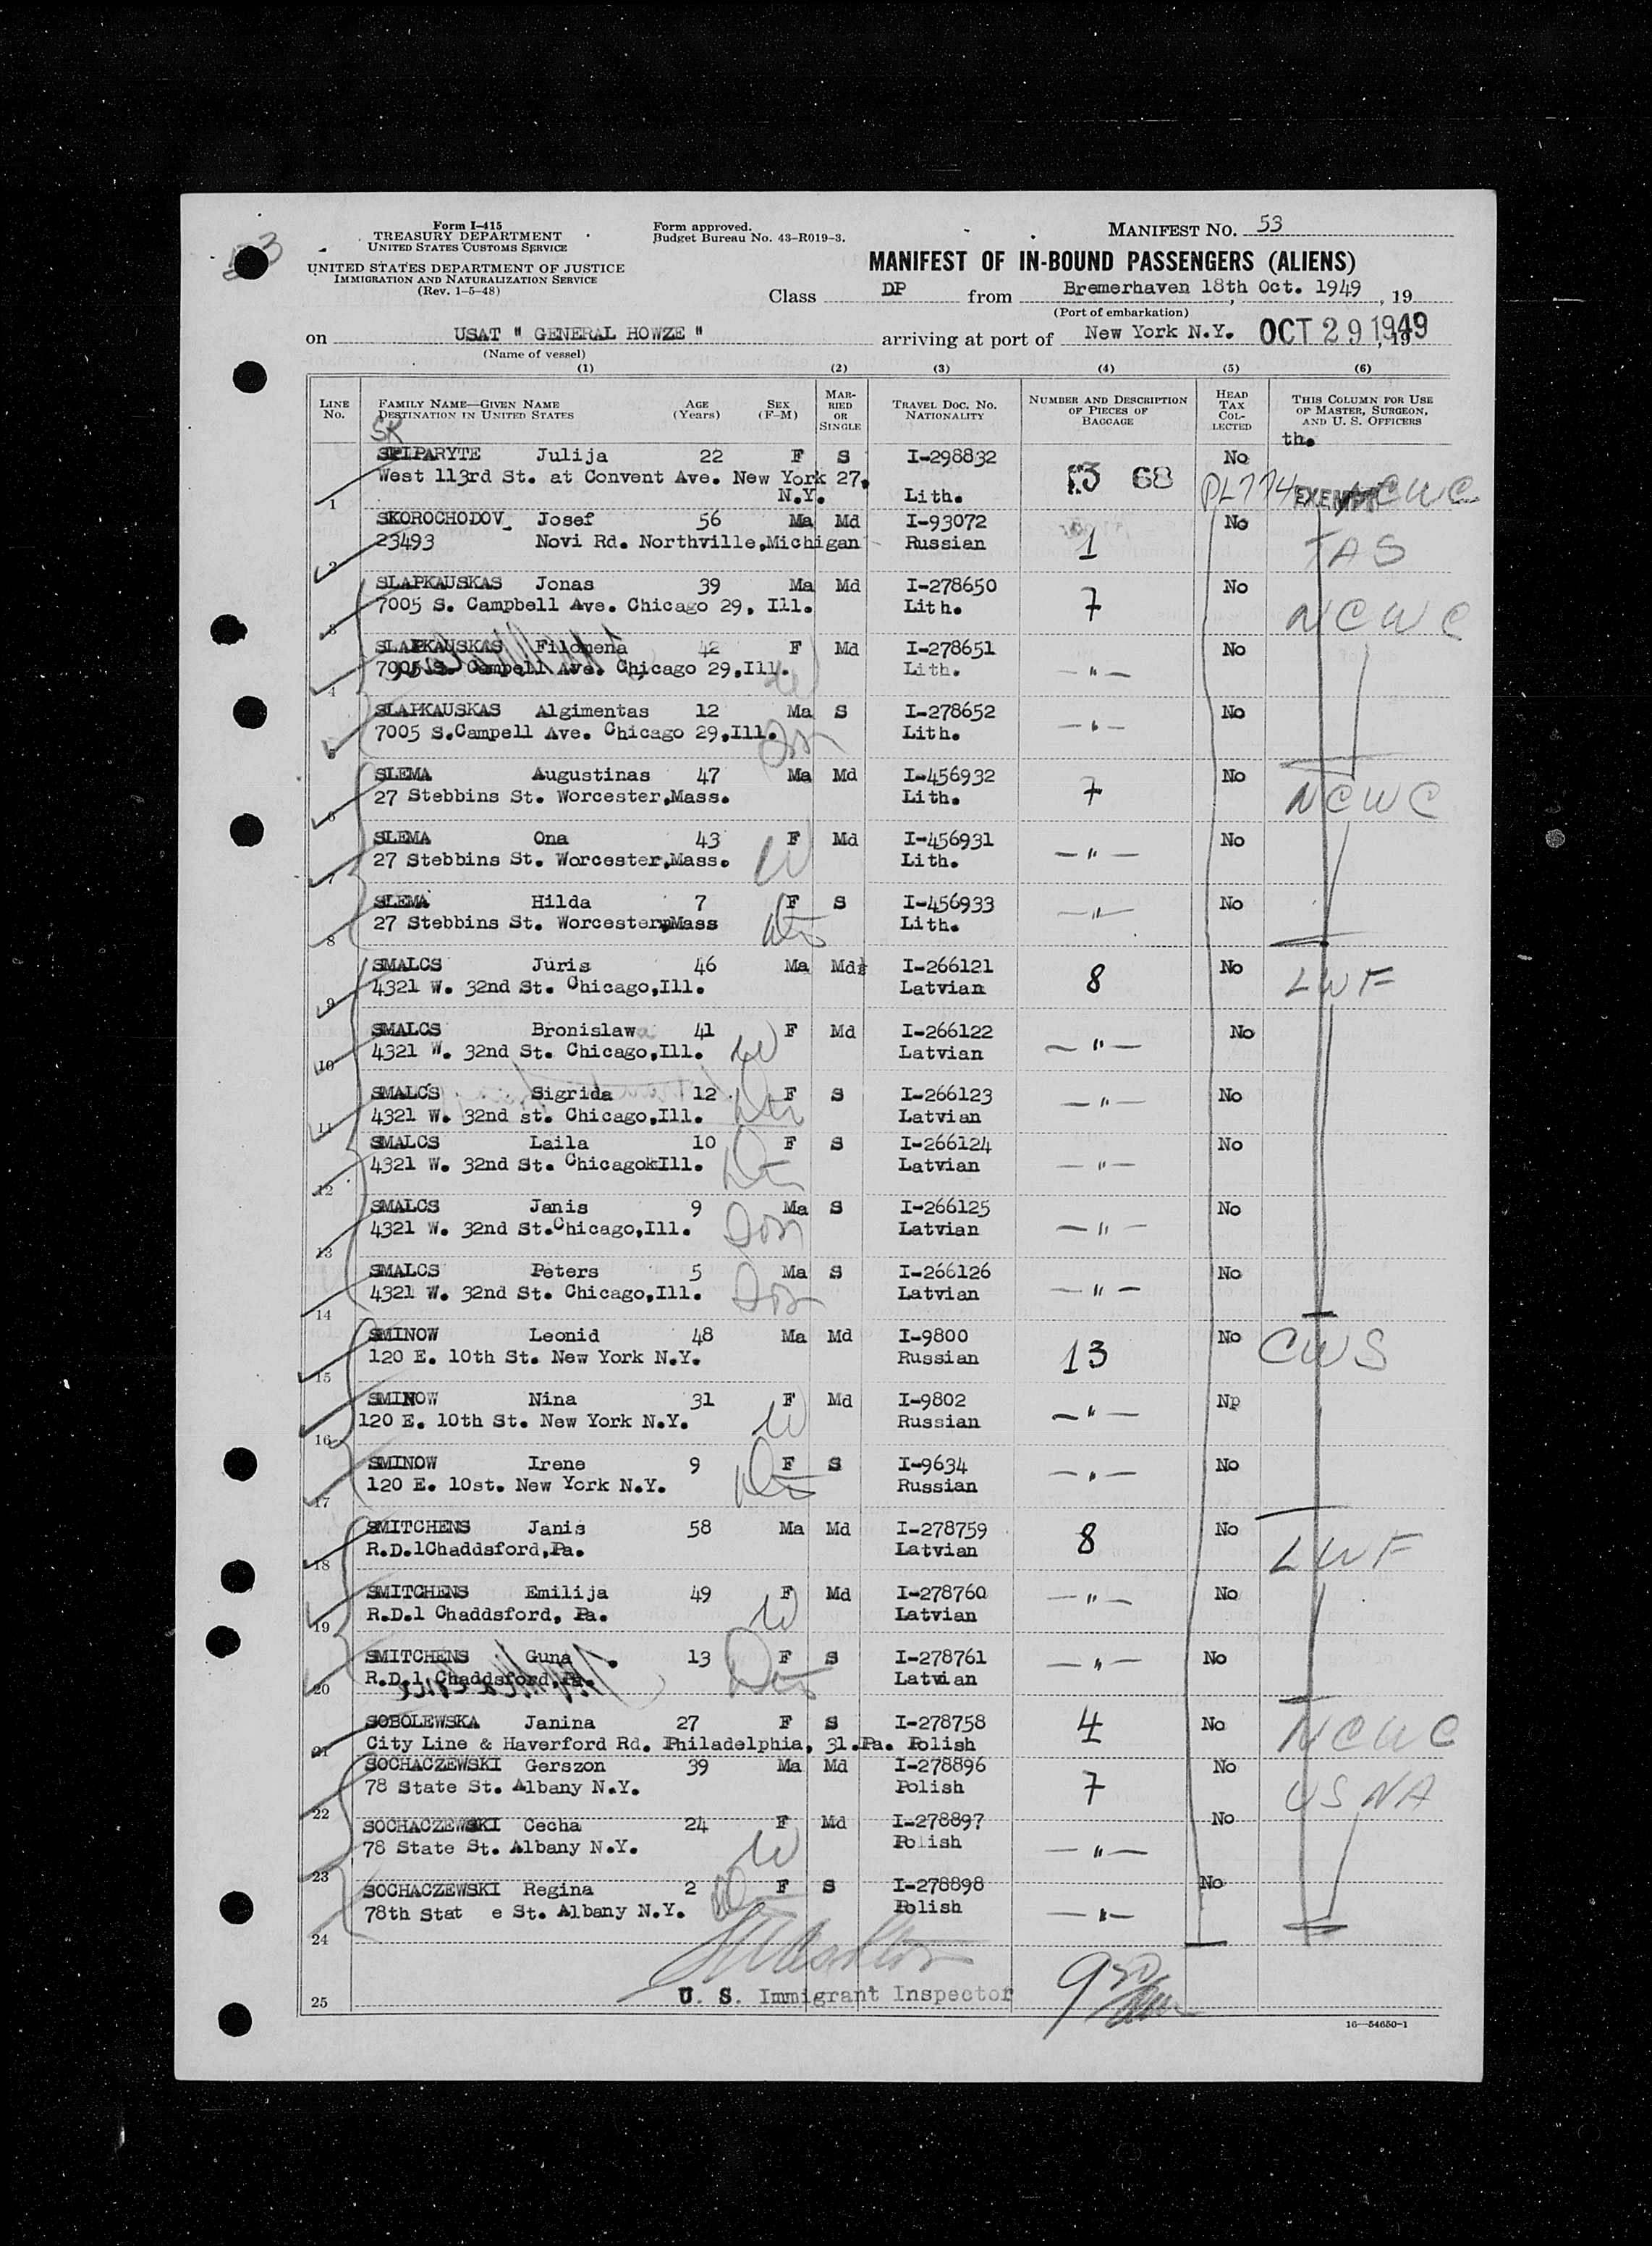 53
Form I-415
TREASURY DEPARTMENT
UNITED STATES CUSTOMS SERVICE
UNITED STATES DEPARTMENT OF JUSTICE
IMMIGRATION AND NATURALIZATION SERVICE
(Rev. 1-5-48)
Form approved.
Budget Bureau No. 43-R019-3.
MANIFEST NO. 53
MANIFEST OF IN-BOUND PASSENGERS (ALIENS)
Class DP from Bremerhaven 18th Oct. 1949, 19
(Port of embarkation)
on USAT " GENERAL HOWZE " arriving at port of New York N.Y. OCT 29 1949, 19
(Name of vessel)
(1) (2) (3) (4) (5) (6)
LINE No. FAMILY NAME—GIVEN NAME DESTINATION IN UNITED STATES AGE (Years) SEX (F-M) MARRIED OR SINGLE TRAVEL DOC. NO. NATIONALITY NUMBER AND DESCRIPTION OF PIECES OF BAGGAGE HEAD TAX COLLECTED THIS COLUMN FOR USE OF MASTER, SURGEON, AND U. S. OFFICERS
SK th.
Julija 22 F S I-298832 No
West 113rd St. at Convent Ave. New York 27, 68 PL774 EXEMPT NCWC
1 N.Y. Lith.
SKOROCHODOV Josef 56 Ma Md I-93072 No
2 23493 Novi Rd. Northville,Michigan Russian 1
SLAPKAUSKAS Jonas 39 Ma Md I-278650 No
3 7005 S. Campbell Ave. Chicago 29, Ill. Lith. 7 NCWC
SLAPKAUSKAS Filomena 42 F Md I-278651 No
4 7005 S. Campell Ave. Chicago 29,Ill. W Lith. — " —
SLAPKAUSKAS Algimentas 12 Ma S I-278652 No
5 7005 S.Campell Ave. Chicago 29,Ill. Son Lith. — " —
SLEMA Augustinas 47 Ma Md I-456932 No
6 27 Stebbins St. Worcester,Mass. Lith. 7 NCWC
SLEMA Ona 43 F Md I-456931 No
7 27 Stebbins St. Worcester,Mass. W Lith. — " —
SLEMA Hilda 7 F S I-456933 No
8 27 Stebbins St. Worcester,Mass Lith. — " —
SMALCS Juris 46 Ma Md I-266121 No
9 4321 W. 32nd St. Chicago,Ill. Latvian 8 LWF
SMALCS Bronislawa 41 F Md I-266122 No
10 4321 W. 32nd St. Chicago,Ill. W Latvian — " —
SMALCS Sigrida 12 F S I-266123 No
11 4321 W. 32nd st. Chicago,Ill. Latvian — " —
SMALCS Laila 10 F S I-266124 No
12 4321 W. 32nd St. ChicagokIll. Latvian — " —
SMALCS Janis 9 Ma S I-266125 No
13 4321 W. 32nd St.Chicago,Ill. Son Latvian — " —
SMALCS Peters 5 Ma S I-266126 No
14 4321 W. 32nd St. Chicago,Ill. Son Latvian — " —
SMINOW Leonid 48 Ma Md I-9800 No
15 120 E. 10th St. New York N.Y. Russian 13 CWS
SMINOW Nina 31 F Md I-9802 Np
16 120 E. 10th St. New York N.Y. W Russian — " —
SMINOW Irene 9 F S I-9634 No
17 120 E. 10st. New York N.Y. Russian — " —
SMITCHENS Janis 58 Ma Md I-278759 No
18 R.D.1Chaddsford,Pa. Latvian 8 LWF
SMITCHENS Emilija 49 F Md I-278760 No
19 R.D.1 Chaddsford, Pa. W Latvian — " —
SMITCHENS Guna 13 F S I-278761 No
20 R.D.1 Chaddsford,Pa. Latvian — " —
SOBOLEWSKA Janina 27 F S I-278758 4 No NCWC
21 City Line & Haverford Rd. Philadelphia, 31.Pa. Polish
SOCHACZEWSKI Gerszon 39 Ma Md I-278896 No
22 78 State St. Albany N.Y. Polish 7 USNA
SOCHACZEWSKI Cecha 24 F Md I-278897 No
23 78 State St. Albany N.Y. W Polish — " —
SOCHACZEWSKI Regina 2 F S I-278898 No
24 78th Stat e St. Albany N.Y. Polish — " —
25 U. S. Immigrant Inspector
16—54650-1